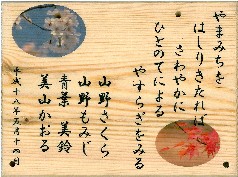 やまみちを
はしりきたれば
さわやかに
ひとのてによる
やすらぎをみる
山野さくら
山野もみじ
青葉 美鈴
美山かおる
平成十八年五月十四日